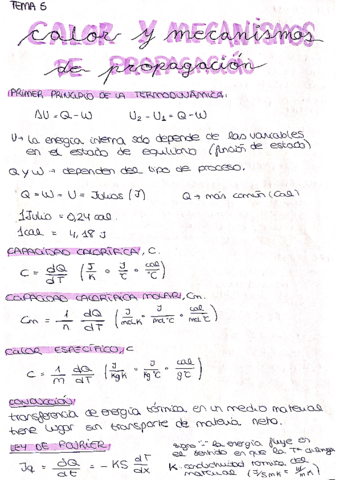 TEMA 5
CALOR Y MECANISMOS
DE PROPAGACIÓN
PRIMER PRINCIPIO DE LA TERMODINÁMICA:
ΔU = Q - W    U₂ - U₁ = Q - W
U → la energía interna solo depende de las variables
en el estado de equilibrio (función de estado)
Q y W → dependen del tipo de proceso.
Q = W = U = Julios (J)    Q → más común (cal)
1 Julio = 0,24 cal
1 cal = 4,18 J
CAPACIDAD CALORÍFICA, C.
C = dQ/dT (J/K = J/°C = cal/°C)
CAPACIDAD CALORÍFICA MOLAR, Cm.
Cm = 1/n dQ/dT (J/mol·K = J/mol°C = cal/mol°C)
CALOR ESPECÍFICO, C
C = 1/m dQ/dT (J/kg K = J/kg°C = cal/g°C)
CONDUCCIÓN
transferencia de energía térmica en un medio material
tiene lugar sin transporte de materia neto.
LEY DE FOURIER:
Jq = dQ/dt = - KS dT/dx
signo "-" la energía fluye en
el sentido en que la Tª
K · conductividad térmica del
material